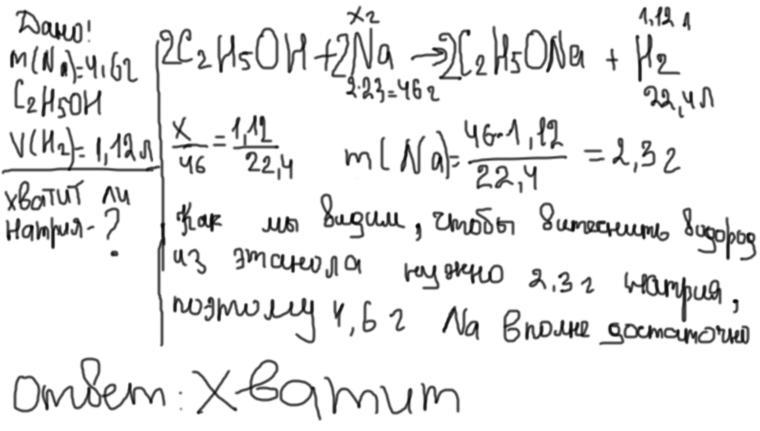 Дано!
m(Na)=4,6г
C2H5OH
V(H2)=1,12л
хватит ли
натрия-?
x г
1,12 л
2C2H5OH+2Na→2C2H5ONa + H2
2·23=46г
22,4л
x/46=1,12/22,4 m(Na)=46·1,12/22,4=2,3г
Как мы видим, чтобы витеснить водород
из этанола нужно 2,3г натрия,
поэтому 4,6г Na вполне достаточно
Ответ: Хватит